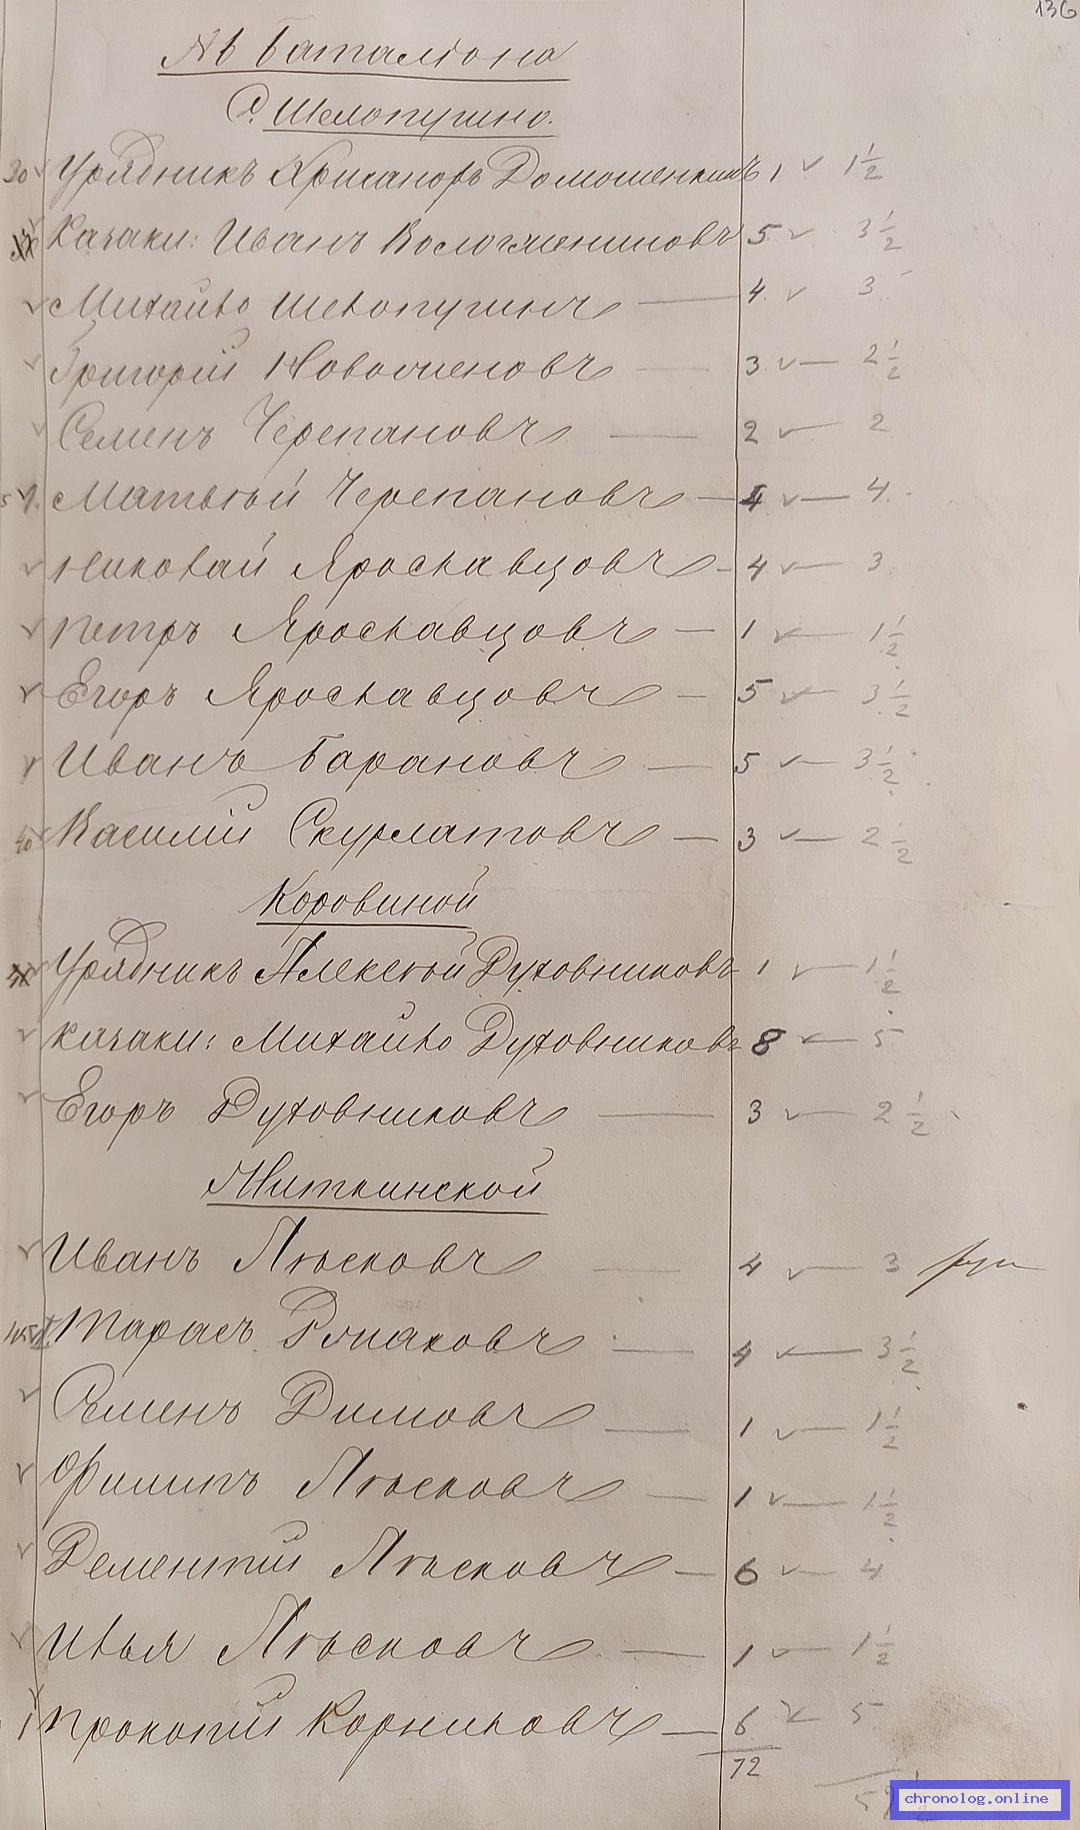 136
№ 6 баталіона
С. Шелопугино.
30 Урядникъ Хрисанфъ Домошенкинъ 1 1 1/2
Казаки: Иванъ 5 3 1/2
Михайло Шелопугинъ 4 3
Григорій Новосменовъ 3 2 1/2
Семенъ Черепановъ 2 2
Матвѣй Черепановъ 4 4
Николай Ярославцовъ 4 3
Петръ Ярославцовъ 1 1 1/2
Егоръ Ярославцовъ 5 3 1/2
Иванъ Барановъ 5 3 1/2
40 Василій Скурлатовъ 3 2 1/2
Коровиной
Урядникъ Алексѣй Духовниковъ 1 1 1/2
Казаки: Михайло Духовниковъ 8 5
Егоръ Духовниковъ 3 2 1/2
Миткинской
Иванъ Лѣсковъ 4 3
Тарасъ 4 3 1/2
Семенъ Димовъ 1 1 1/2
Филипъ Лѣсковъ 1 1 1/2
Дементій Лѣсковъ 6 4
Илья Лѣсковъ 1 1 1/2
Прокопій Корниловъ 6 5
72
chronolog.online